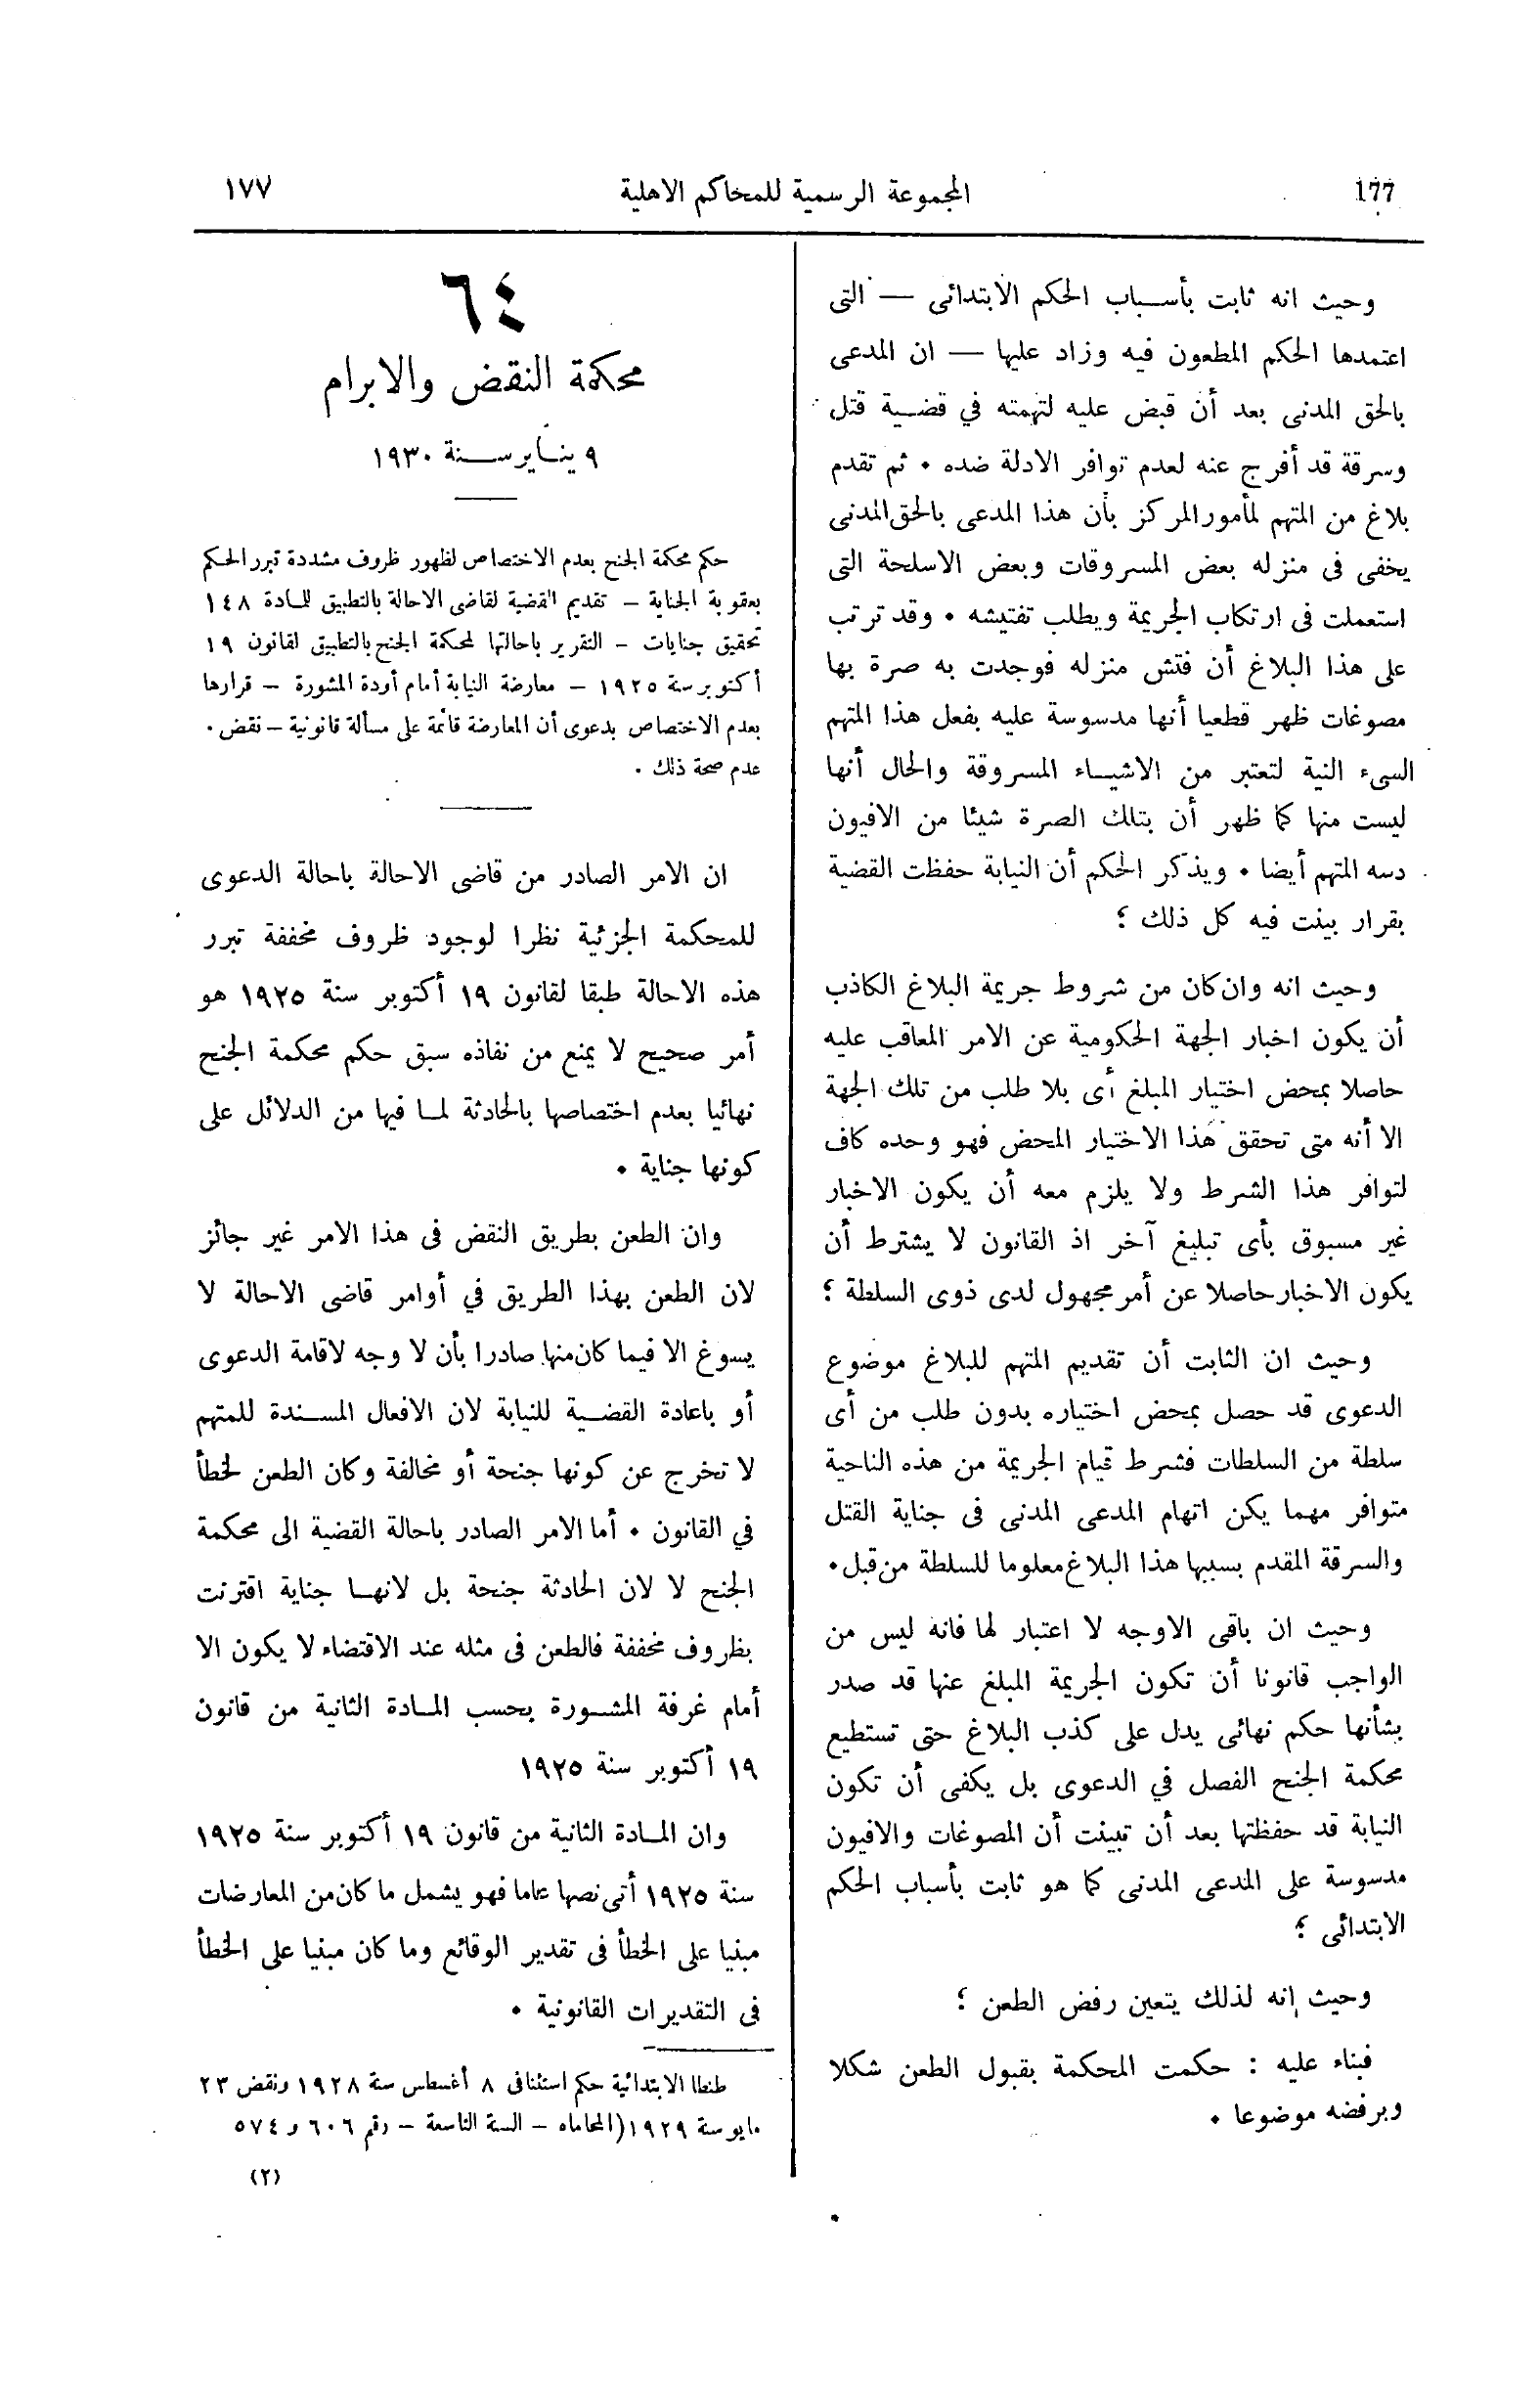 177
المجموعة الرسمية للمحاكم الاهلية
١٧٧
وحيث انه ثابت بأسباب الحكم الابتدائى — التى
اعتمدها الحكم المطعون فيه وزاد عليها — ان المدعى
بالحق المدنى بعد أن قبض عليه لتهمته في قضية قتل
وسرقة قد أفرج عنه لعدم توافر الادلة ضده . ثم تقدم
بلاغ من المتهم لمأمور المركز بأن هذا المدعى بالحق المدنى
يخفى فى منزله بعض المسروقات وبعض الاسلحة التى
استعملت فى ارتكاب الجريمة ويطلب تفتيشه . وقد ترتب
على هذا البلاغ أن فتش منزله فوجدت به صرة بها
مصوغات ظهر قطعيا أنها مدسوسة عليه بفعل هذا المتهم
السىء النية لتعتبر من الاشياء المسروقة والحال أنها
ليست منها كما ظهر أن بتلك الصرة شيئا من الافيون
دسه المتهم أيضا . ويذكر الحكم أن النيابة حفظت القضية
بقرار بينت فيه كل ذلك ؛
وحيث انه وان كان من شروط جريمة البلاغ الكاذب
أن يكون اخبار الجهة الحكومية عن الامر المعاقب عليه
حاصلا بمحض اختيار المبلغ أى بلا طلب من تلك الجهة
الا أنه متى تحقق هذا الاختيار المحض فهو وحده كاف
لتوافر هذا الشرط ولا يلزم معه أن يكون الاخبار
غير مسبوق بأى تبليغ آخر اذ القانون لا يشترط أن
يكون الاخبار حاصلا عن أمر مجهول لدى ذوى السلطة ؛
وحيث ان الثابت أن تقديم المتهم للبلاغ موضوع
الدعوى قد حصل بمحض اختياره بدون طلب من أى
سلطة من السلطات فشرط قيام الجريمة من هذه الناحية
متوافر مهما يكن اتهام المدعى المدنى فى جناية القتل
والسرقة المقدم بسببها هذا البلاغ معلوما للسلطة من قبل .
وحيث ان باقى الاوجه لا اعتبار لها فانه ليس من
الواجب قانونا أن تكون الجريمة المبلغ عنها قد صدر
بشأنها حكم نهائى يدل على كذب البلاغ حتى تستطيع
محكمة الجنح الفصل في الدعوى بل يكفى أن تكون
النيابة قد حفظتها بعد أن تبينت أن المصوغات والافيون
مدسوسة على المدعى المدنى كما هو ثابت بأسباب الحكم
الابتدائى ؛
وحيث إنه لذلك يتعين رفض الطعن ؛
فبناء عليه : حكمت المحكمة بقبول الطعن شكلا
وبرفضه موضوعا .
٦٤
محكمة النقض والابرام
٩ يناير سنة ١٩٣٠
حكم محكمة الجنح بعدم الاختصاص لظهور ظروف مشددة تبرر الحكم
بعقوبة الجناية — تقديم القضية لقاضى الاحالة بالتطبيق للمادة ١٤٨
تحقيق جنايات — التقرير باحالتها لمحكمة الجنح بالتطبيق لقانون ١٩
أكتوبر سنة ١٩٢٥ — معارضة النيابة أمام أودة المشورة — قرارها
بعدم الاختصاص بدعوى أن المعارضة قائمة على مسألة قانونية — نقض .
عدم صحة ذلك .
ان الامر الصادر من قاضى الاحالة باحالة الدعوى
للمحكمة الجزئية نظرا لوجود ظروف مخففة تبرر
هذه الاحالة طبقا لقانون ١٩ أكتوبر سنة ١٩٢٥ هو
أمر صحيح لا يمنع من نفاذه سبق حكم محكمة الجنح
نهائيا بعدم اختصاصها بالحادثة لما فيها من الدلائل على
كونها جناية .
وان الطعن بطريق النقض فى هذا الامر غير جائز
لان الطعن بهذا الطريق في أوامر قاضى الاحالة لا
يسوغ الا فيما كان منها صادرا بأن لا وجه لاقامة الدعوى
أو باعادة القضية للنيابة لان الافعال المسندة للمتهم
لا تخرج عن كونها جنحة أو مخالفة وكان الطعن لخطأ
في القانون . أما الامر الصادر باحالة القضية الى محكمة
الجنح لا لان الحادثة جنحة بل لانها جناية اقترنت
بظروف مخففة فالطعن فى مثله عند الاقتضاء لا يكون الا
أمام غرفة المشورة بحسب المادة الثانية من قانون
١٩ أكتوبر سنة ١٩٢٥
وان المادة الثانية من قانون ١٩ أكتوبر سنة ١٩٢٥
سنة ١٩٢٥ أتى نصها عاما فهو يشمل ما كان من المعارضات
مبنيا على الخطأ فى تقدير الوقائع وما كان مبنيا على الخطأ
فى التقديرات القانونية .
طنطا الابتدائية حكم استئنافى ٨ أغسطس سنة ١٩٢٨ ونقض ٢٣
مايو سنة ١٩٢٩ (المحاماه — السنة التاسعة — رقم ٦٠٦ و ٥٧٤
(٢)